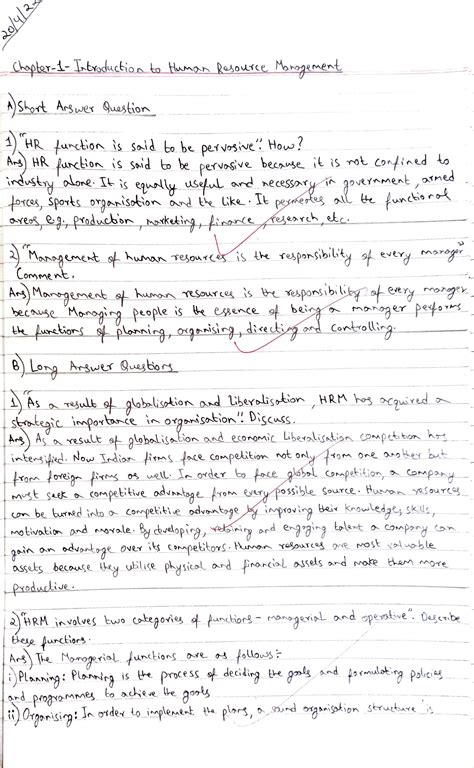 20/4/2
Chapter-1- Introduction to Human Resource Management
A) Short Answer Question
1) "HR function is said to be pervasive". How?
Ans) HR function is said to be pervasive because it is not confined to
industry alone. It is equally useful and necessary in government, armed
forces, sports organisation and the like. It permeates all the functional
areas, e.g., production, marketing, finance, research, etc.
2) "Management of human resources is the responsibility of every manager"
Comment.
Ans) Management of human resources is the responsibility of every manager
because Managing people is the essence of being a manager performs
the functions of planning, organising, directing and controlling.
B) Long Answer Questions
1) "As a result of globalisation and liberalisation, HRM has acquired a
strategic importance in organisation". Discuss.
Ans) As a result of globalisation and economic liberalisation competition has
intensified. Now Indian firms face competition not only from one another but
from foreign firms as well. In order to face global competition, a company
must seek a competitive advantage from every possible source. Human resources
can be turned into a competitive advantage by improving their knowledge, skills,
motivation and morale. By developing, retaining and engaging talent a company can
gain an advantage over its competitors. Human resources are most valuable
assets because they utilise physical and financial assets and make them more
productive.
2) "HRM involves two categories of functions - managerial and operative". Describe
these functions.
Ans) The Managerial functions are as follows:-
i) Planning: Planning is the process of deciding the goals and formulating policies
and programmes to achieve the goals
ii) Organising: In order to implement the plans, a sound organisation structure is